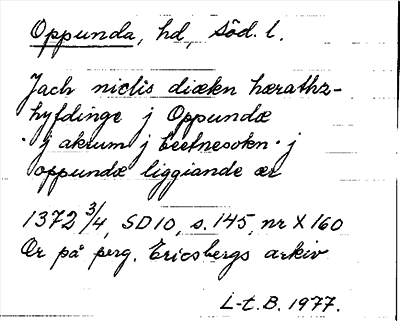 Oppunda, hd, Söd. l.
Jach niclis diækn hærathz-
hyfdinge j Oppundæ
· j akrum j bëtnesokn · j
oppundæ liggiande ær
1372 3/4, SD10, s. 145, nr X 160
Or på perg. Ericsbergs arkiv
L-t. B. 1977.